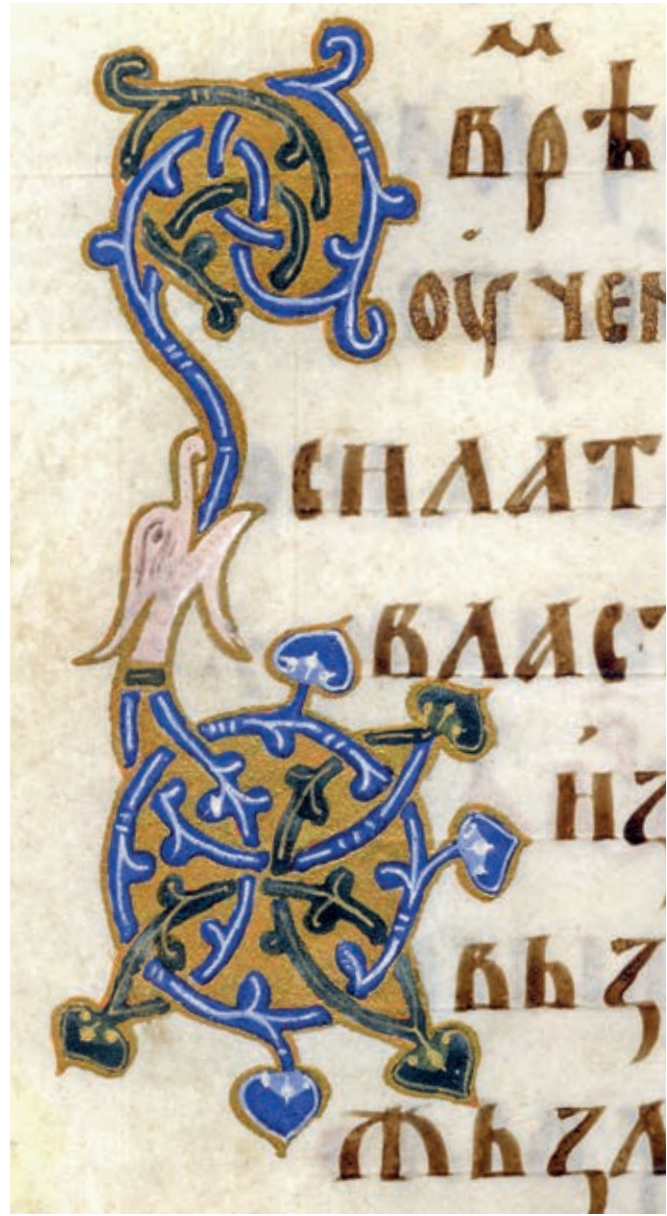 врѣ м
оу҆чен
силат
власт
и҆з
въз
тъзл